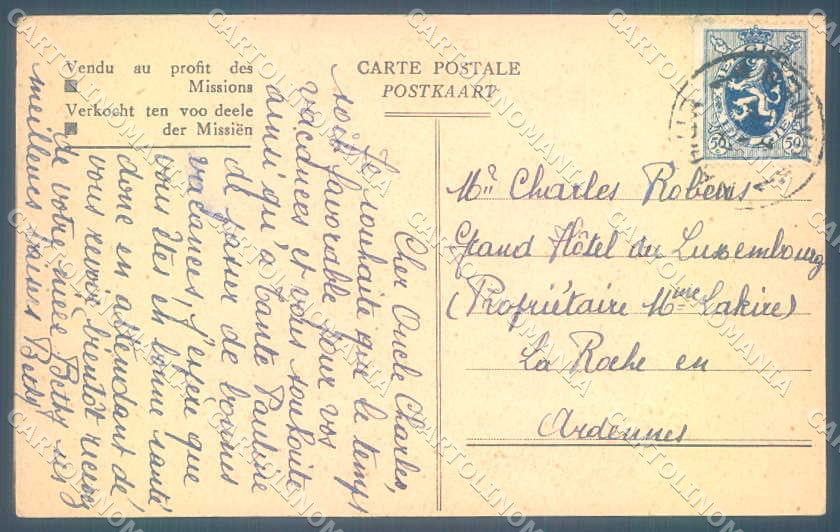 Vendu au profit des
Missions
Verkocht ten voo deele
der Missiën
CARTE POSTALE
POSTKAART
BELGIQUE
BELGIË
50 50
Mr Charles Robens
Grand Hôtel du Luxembourg
(Propriétaire Mme Lakire)
La Roche en
Ardennes
Cher Oncle Charles,
Je souhaite que le temps
soit favorable pour vos
vacances et vous souhaite
ainsi qu'à tante Pauline
de passer de bonnes
vacances, j'espère que
vous êtes en bonne santé
donc en attendant de
vous revoir bientôt recevez
de votre nièce Betty ses
meilleurs baisers Betty
CARTOLINOMANIA